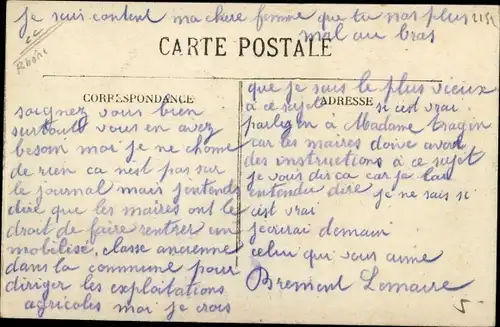 je suis content ma chere femme que tu nas plus
mal au bras
Rhone
CARTE POSTALE
CORRESPONDANCE
soignez vous bien
surtout vous en avez
besoin moi je ne chome
de rien ca nest pas sur
le journal mais jentends
dire que les maires ont le
droit de faire rentrer un
mobilisé, classe ancienne
dans la commune pour
diriger les exploitations
agricoles moi je crois
que je suis le plus vieux
ADRESSE
à ce sujet si cest vrai
parlez en à Madame tragin
car les maires doive avoir
des instructions à ce sujet
je vous dis ca car je lai
entendu dire je ne sais si
cest vrai
jecrirai demain
celui qui vous aime
Brement Lemaire